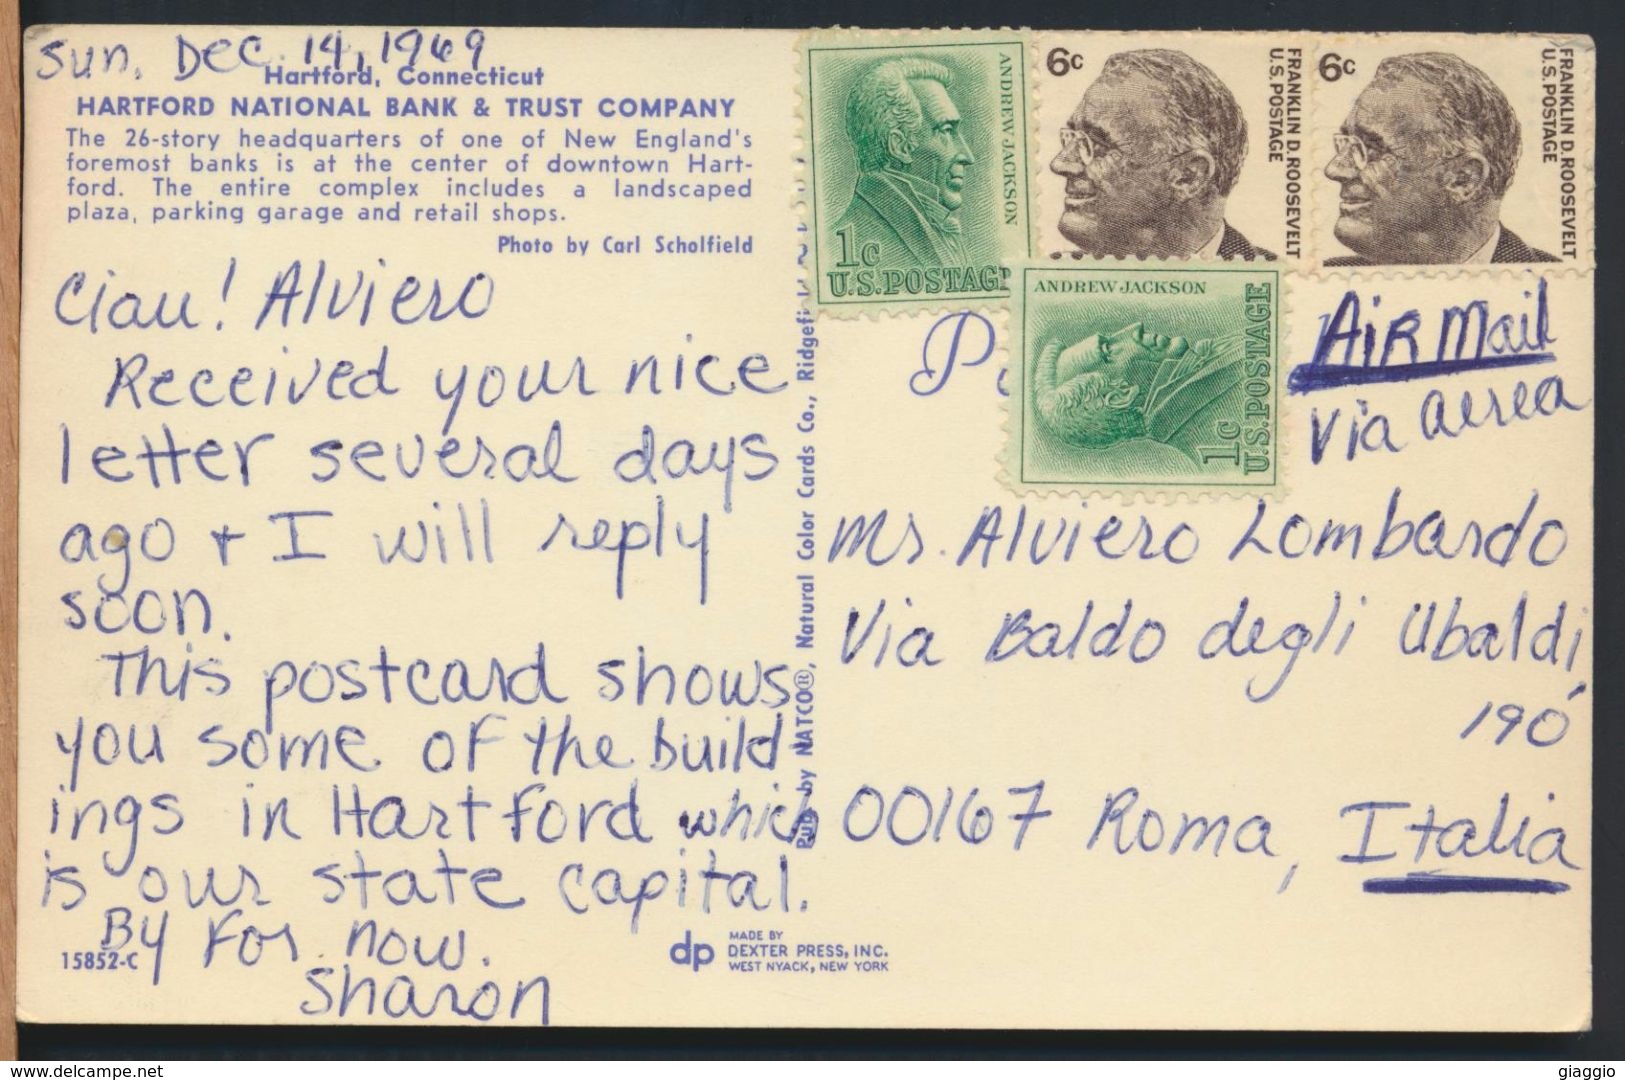 Sun. Dec. 14, 1969
Hartford, Connecticut
HARTFORD NATIONAL BANK & TRUST COMPANY
The 26-story headquarters of one of New England's
foremost banks is at the center of downtown Hart-
ford. The entire complex includes a landscaped
plaza, parking garage and retail shops.
Photo by Carl Scholfield
Ciau! Alviero
Received your nice
letter several days
ago + I will reply
soon.
This postcard shows
you some of the build
ings in Hartford which
is our state capital.
By for now.
Sharon
15852-C
dp
MADE BY
DEXTER PRESS, INC.
WEST NYACK, NEW YORK
Pub. by NATCO®, Natural Color Cards Co., Ridgefi
ANDREW JACKSON
1c
U.S. POSTAGE
6c
FRANKLIN D. ROOSEVELT
U.S. POSTAGE
6c
FRANKLIN D. ROOSEVELT
U.S. POSTAGE
ANDREW JACKSON
1c
U.S. POSTAGE
Air Mail
Via aerea
Mr. Alviero Lombardo
Via Baldo degli Ubaldi,
190
00167 Roma, Italia
delcampe.net
giaggio